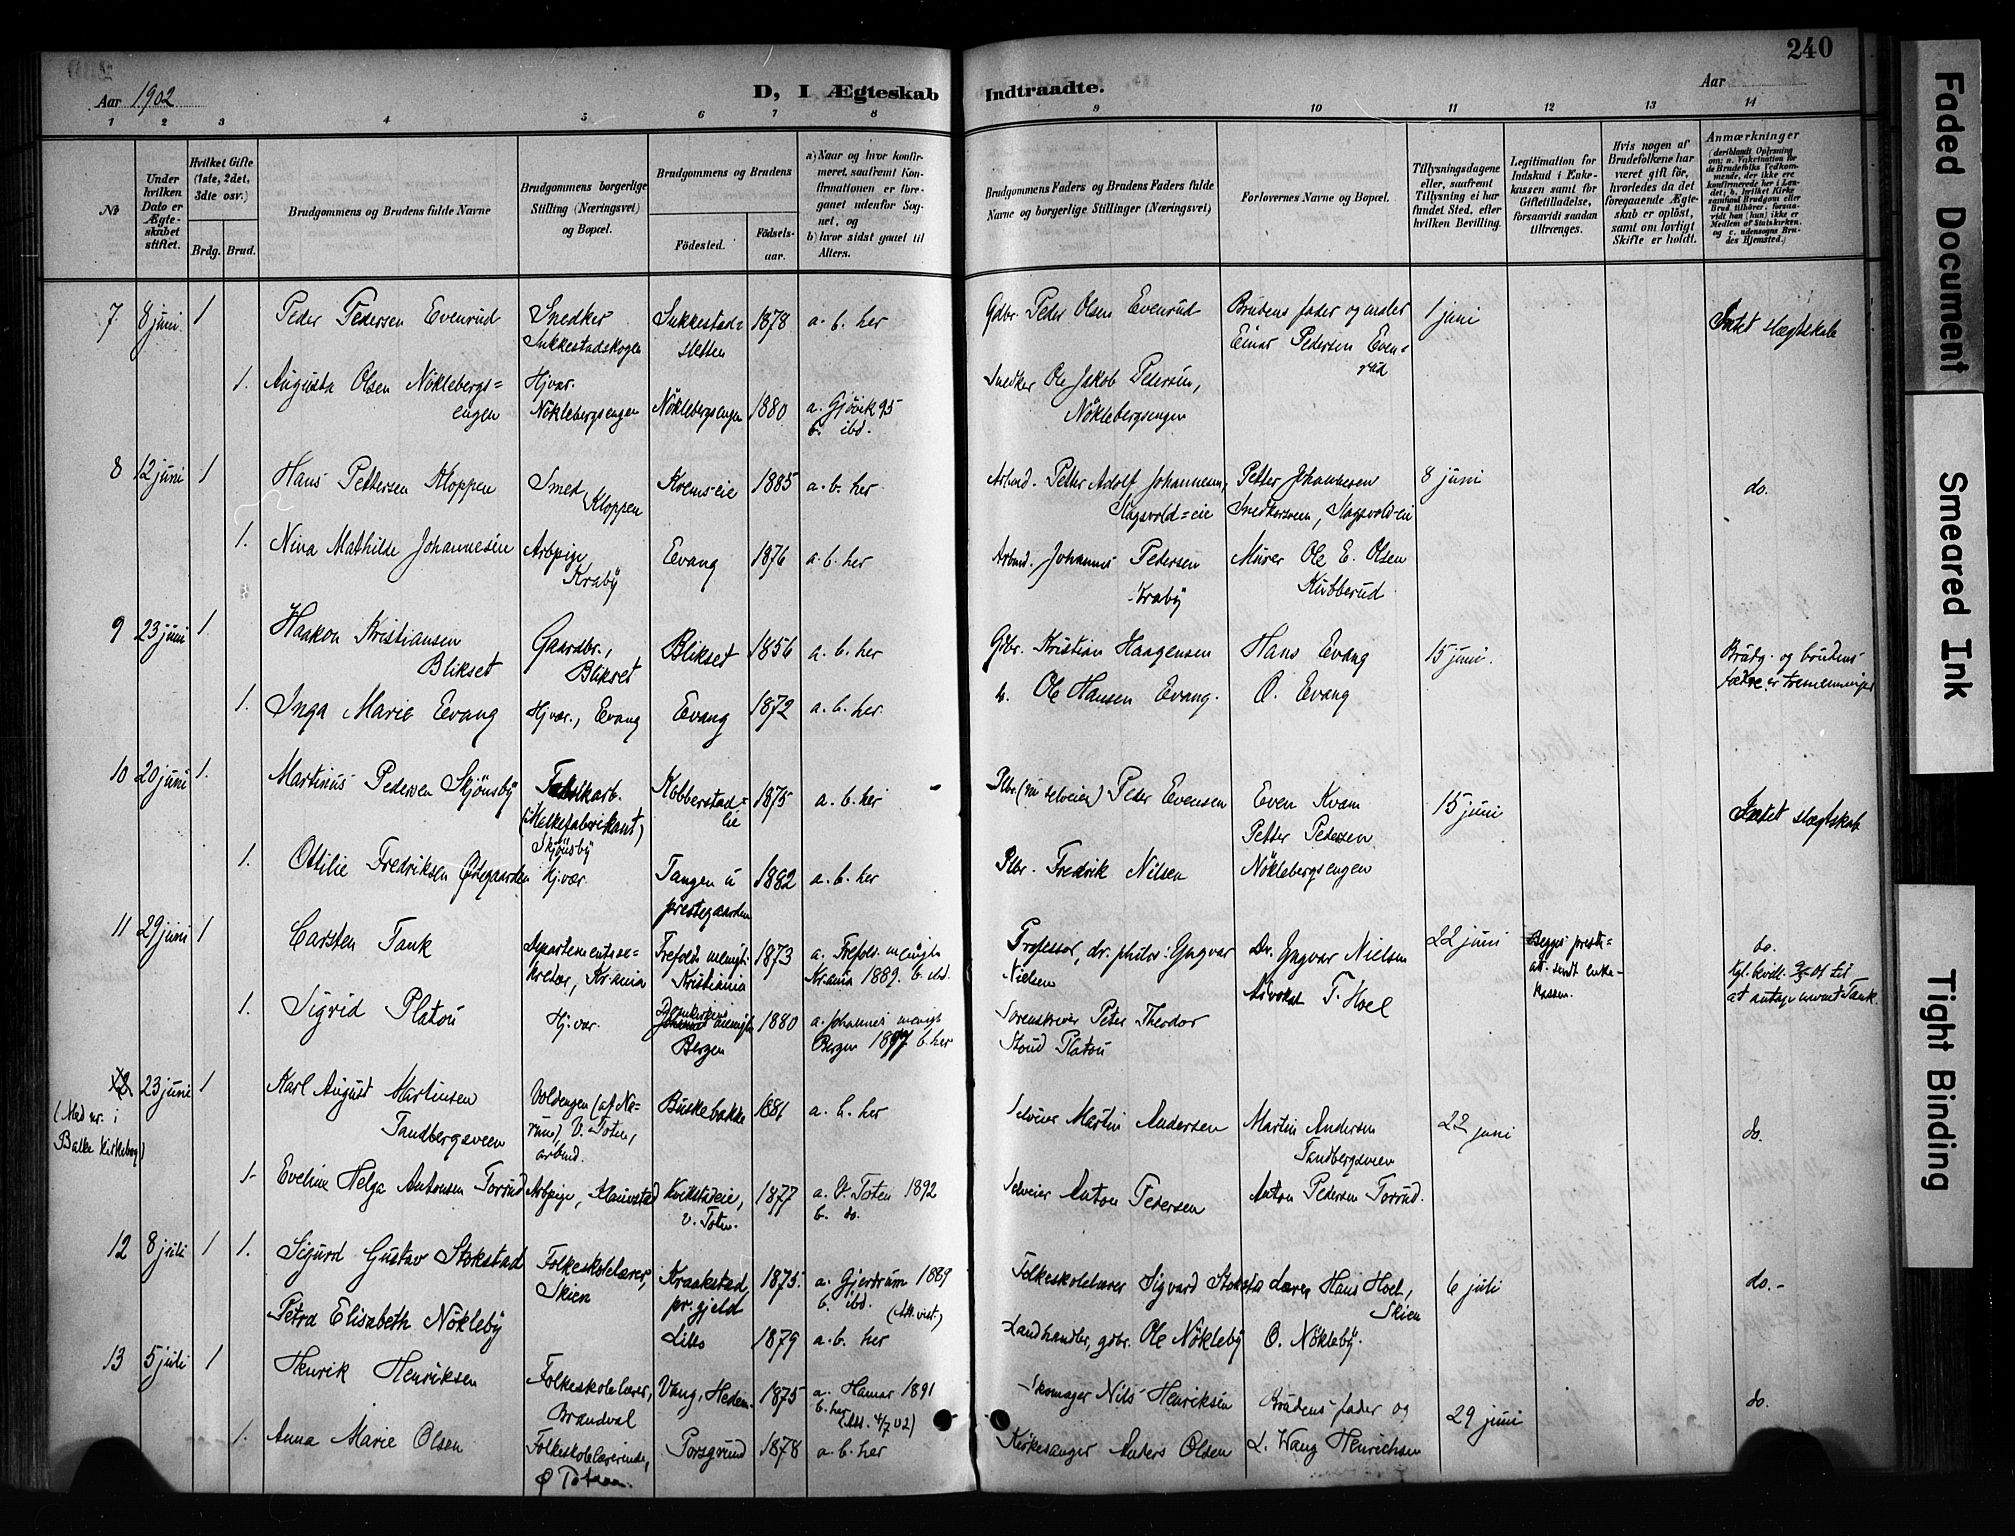 240
Aar 1902
D, I Ægteskab Indtraadte.
Aar
1 2 3 4 5 6 7 8 9 10 11 12 13 14
No
Under hvilken Dato er Ægteskabet stiftet.
Hvilket Gifte (1ste, 2det, 3die osv.)
Brdg. Brud.
Brudgommens og Brudens fulde Navne
Brudgommens borgerlige Stilling (Næringsvei) og Bopæl.
Brudgommens og Brudens
Födested. Födselsaar.
a) Naar og hvor konfirmeret, saafremt Konfirmationen er foregaaet udenfor Sognet, og
b) hvor sidst gaaet til Alters.
Brudgommens Faders og Brudens Faders fulde Navne og borgerlige Stillinger (Næringsvei)
Forlovernes Navne og Bopæl.
Tillysningsdagene eller, saafremt Tillysning ei har fundet Sted, efter hvilken Bevilling.
Legitimation for Indskud i Enkekassen samt for Giftetilladelse, forsaavidt saadan tiltrænges.
Hvis nogen af Brudefolkene har været gift för, hvorledes da det foregaaende Ægteskab er oplöst, samt om lovligt Skifte er holdt.
Anmærkninger
7 8 juni 1 Peder Pedersen Evenrud Snedker Sukkestadskogen Sukkestad=sletten 1878 a. b. her Gdbr. Peder Olsen Evenrud Brudens fader og maler Einar Pedersen Evenrud 1 juni Intet slægtskab
1. Augusta Olsen Nöklebergs=engen Hj.vær. Nöklebergsengen Nöklebergsengen 1880 a. Gjövik 95 b. ibd. Snedker Ole Jakob Pedersen, Nöklebergsengen
8 12 juni 1 Hans Pettersen Kloppen Smed Kloppen Kvems-eie 1885 a. b. her Arbmd. Petter Adolf Johannesen, Slagsvold=eie Petter Johannesen Snedkersveen, Slagsvold-eie 8 juni do.
1. Nina Mathilde Johannesen Arbpige Kraby Evang 1876 a. b. her Arbmd. Johannes Pedersen Kraby Murer Ole E. Olsen Kubberud
9 23 juni 1. Haakon Kristiansen Blikset Gaardbr., Blikset Blikset 1856 a. b. her Gdbr. Kristian Haagensen Hans Evang 15 juni. Brudg. og brudens fædre er tremenninger
1. Inga Marie Evang Hj.vær., Evang Evang 1872 a. b. her Ole Hansen Evang. O. Evang
10 20 juni 1. Martinus Pedersen Skjönsby Fabrikarb. (Melkefabrikant) Skjönsby Kobberstad=eie 1875 a. b. her Plbr. (nu selveier) Peder Evensen Even Kvam Petter Pedersen 15 juni Intet slægtskab
1. Ottilie Fredriksen Østegaarden Hj.vær. Tangen u prestegaarden 1882 a. b. her Plbr. Fredrik Nilsen Nöklebergsengen
11 29 juni 1 Carsten Tank Departementsse=kretær, Kr.ania Trefold. menigh. Kristiania 1873 a. Trefold. menigh. Kr.ania 1889. b. ibd. Professor, dr. philos. Yngvar Nielsen Dr. Yngvar Nielsen 22 juni Begges prest=att. sendt enke=kassen. do. Kgl. bevill. til at antage navnet Tank.
1. Sigrid Platou Hj.vær. Domkirkens menigh. Bergen 1880 a. Johannes menigh. Bergen 1897 b. her Sorenskriver Peter Theodor Stoud Platou Advokat T. Hoel
12 23 juni 1 Karl August Martinsen Tandbergsveen Voldengen (af Narum), V. Toten, arbmd. Buskebakke 1881 a. b. her Selveier Martin Andersen Martin Andersen Tandbergsveen 22 juni do.
(Med nr. i Balke kirkebog)
1. Eveline Helga Antonsen Torrud Arbpige, Klauvstad Kvikstadeie, V. Toten. 1877 a. V. Toten 1892 b. do. Selveier Anton Pedersen Anton Pedersen Torrud.
12 8 juli 1 1. Sigurd Gustav Stokstad Folkeskolelærer, Skien Kraakstad, pr.gjeld 1875. a. Gjerdrum 1889 b. ibd. (Att. vist.) Folkeskolelærer Sigvard Stokstad Lærer Hans Hoel, Skien 6 juli do.-
Petra Elisabeth Nökleby Lillo 1879 a. b. her Landhandler, gdbr. Ole Nökleby O. Nökleby.
13 5 juli 1 Henrik Henriksen Folkeskolelærer, Brandval Vang, Hedem. 1875 a. Hamar 1891 b. her (Att. 4/7 02) Skomager Nils Henriksen Brudens fader og 29 juni do.
1. Anna Marie Olsen Folkeskolelærerinde, Ø Toten. Porsgrund 1878 a. b. her Kirkesanger Anders Olsen L. Wang Henrichsen
Faded Document
Smeared Ink
Tight Binding